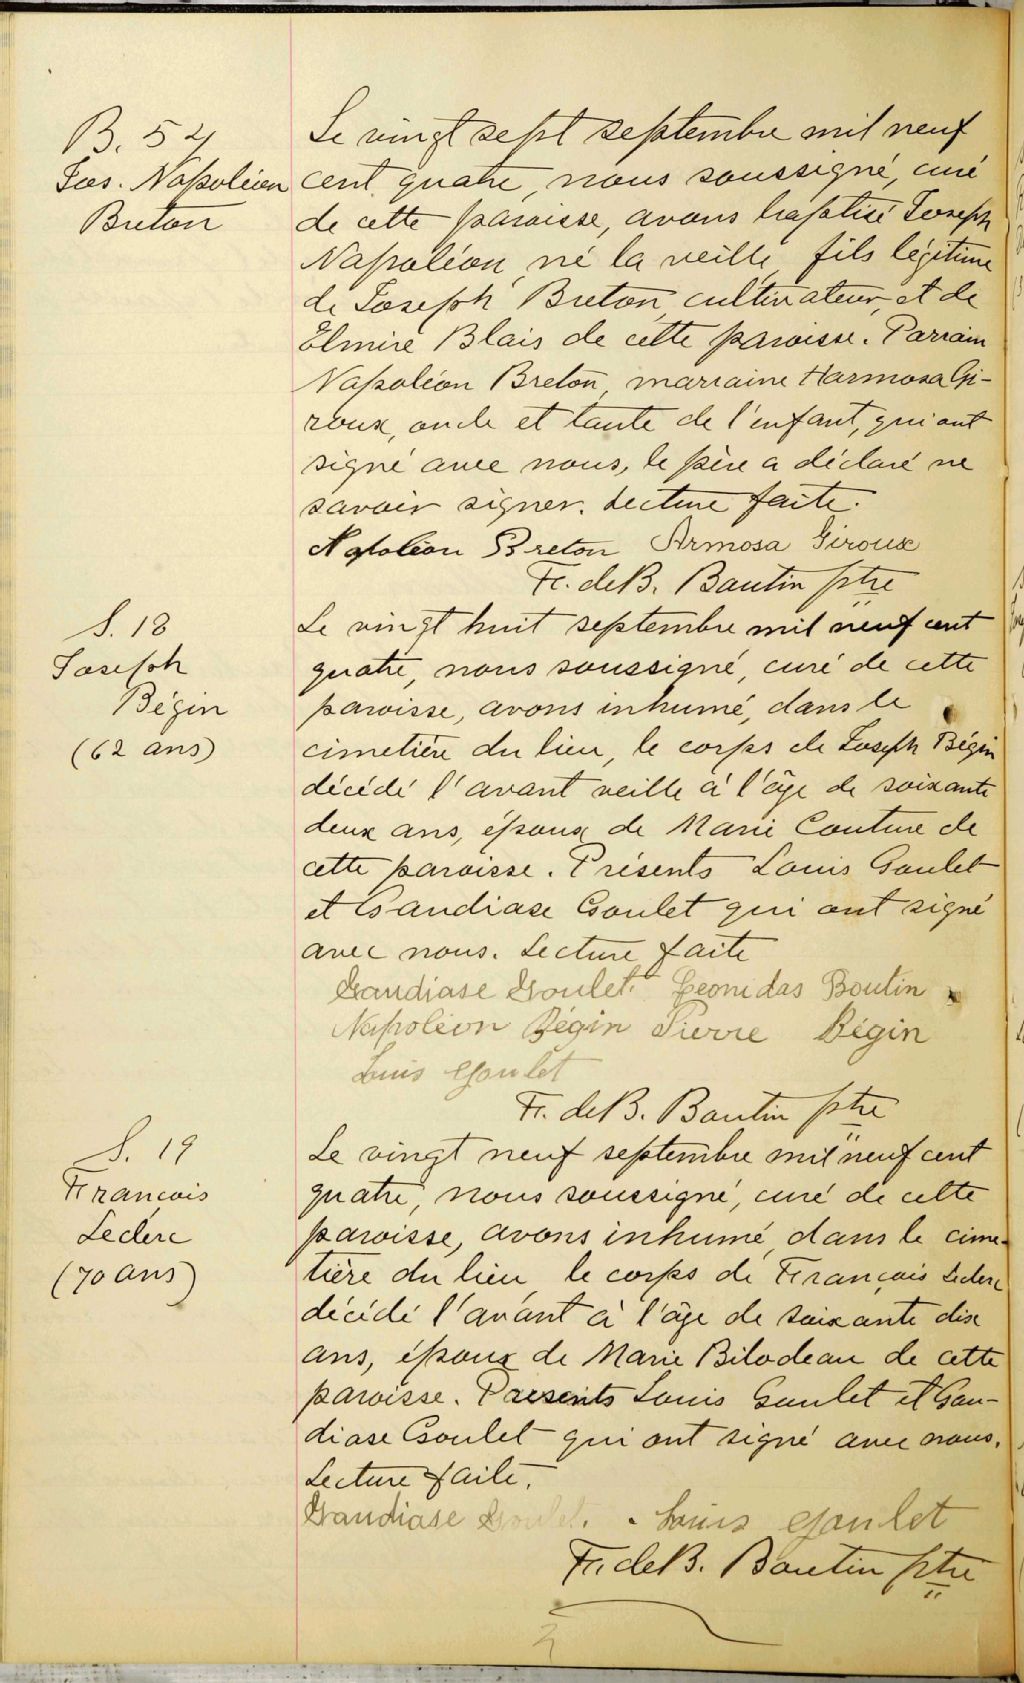 B. 54
Jos. Napoléon
Breton
Le vingt sept septembre mil neuf
cent quatre, nous soussigné, curé
de cette paroisse, avons baptisé Joseph
Napoléon, né la veille, fils légitime
de Joseph Breton, cultivateur, et de
Elmire Blais de cette paroisse. Parrain
Napoléon Breton, marraine Harmosa Gi-
roux, oncle et tante de l'enfant, qui ont
signé avec nous, le père a déclaré ne
savoir signer. Lecture faite.
Napoléon Breton Armosa Giroux
Fr. de B. Boutin ptre
S. 18
Joseph
Bégin
(62 ans)
Le vingt huit septembre mil neuf cent
quatre, nous soussigné, curé de cette
paroisse, avons inhumé, dans le
cimetière du lieu, le corps de Joseph Bégin
décédé l'avant veille à l'âge de soixante
deux ans, époux de Marie Couture de
cette paroisse. Présents Louis Goulet
et Gaudiase Goulet qui ont signé
avec nous. Lecture faite
Gaudiase Goulet. Leonidas Boutin
Napoléon Bégin Pierre Bégin
Louis Goulet
Fr. de B. Boutin ptre
S. 19
François
Leclerc
(70 ans)
Le vingt neuf septembre mil neuf cent
quatre, nous soussigné, curé de cette
paroisse, avons inhumé, dans le cime-
tière du lieu, le corps de François Leclerc
décédé l'avant à l'âge de soixante dix
ans, époux de Marie Bilodeau de cette
paroisse. Présents Louis Goulet et Gau-
diase Goulet qui ont signé avec nous.
Lecture faite.
Gaudiase Goulet. Louis Goulet
Fr. de B. Boutin ptre